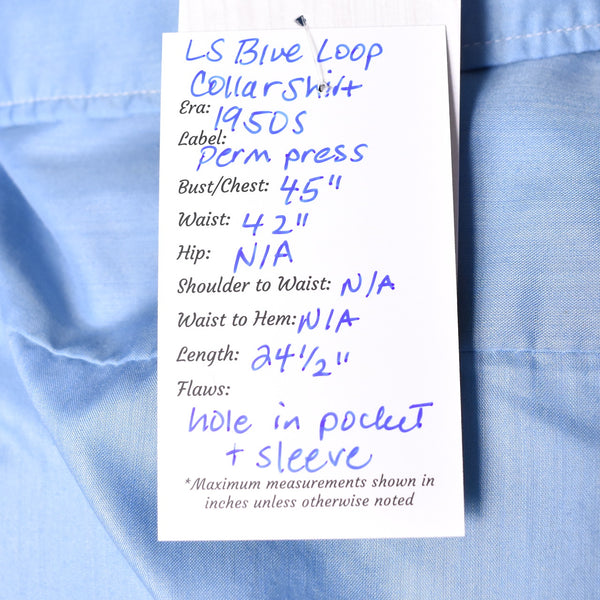 LS Blue Loop
Collar Shirt
Era: 1950s
Label:
perm press
Bust/Chest: 45"
Waist: 42"
Hip: N/A
Shoulder to Waist: N/A
Waist to Hem: N/A
Length: 24 1/2"
Flaws:
hole in pocket
+ sleeve
*Maximum measurements shown in
inches unless otherwise noted